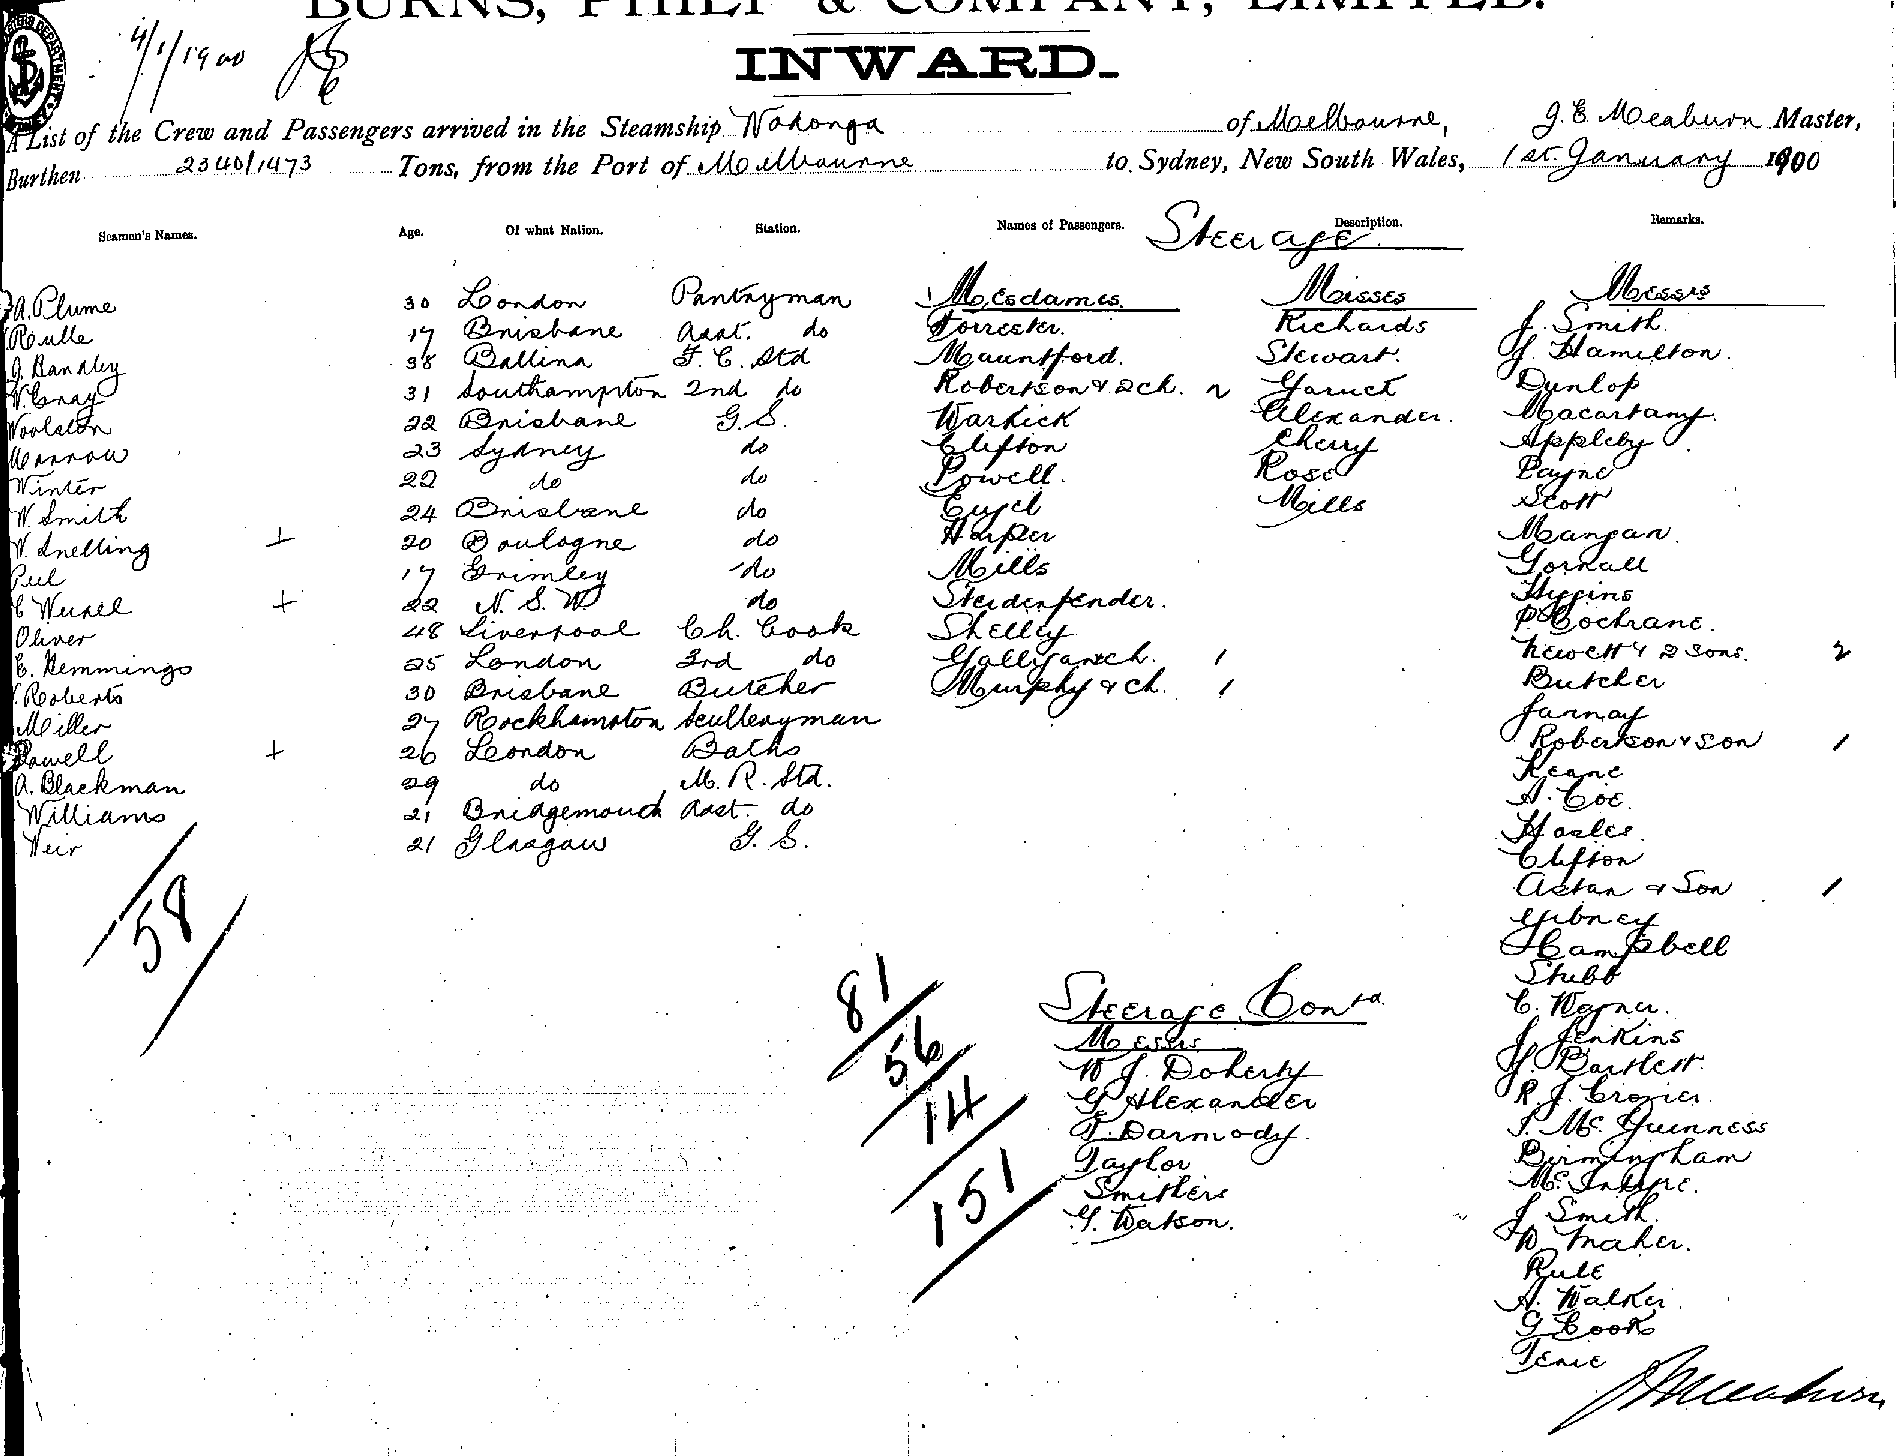 BURNS, PHILP & COMPANY, LIMITED.
4/1/1900
INWARD.
A List of the Crew and Passengers arrived in the Steamship Wodonga of Melbourne, J. E. Meaburn Master,
Burthen 2340/1473 Tons, from the Port of Melbourne to Sydney, New South Wales, 1st January 1900
Seamen's Names. Age. Of what Nation. Station. Names of Passengers. Description. Remarks.
Steerage
Mesdames Misses Messrs
A. Plume 30 London Pantryman
Rulle 17 Brisbane Asst. do Forrester. Richards J. Smith
G. Handley 38 Ballina F. C. Std Mauntford. Stewart. J. Hamilton.
W. Gray 31 Southampton 2nd do Robertson & 2 ch. 2 Garuct Dunlop
Woolston 22 Brisbane G.S. Warkick Alexander. Macartany.
Morrow 23 Sydney do Clifton Cherry Appleby
Winter 22 do do Powell. Rose Payne
W. Smith 24 Brisbane do Mills Scott
W. Snelling + 20 Boulogne do Harper Mangan.
Peel 17 Grimley do Mills Gornall
22 N. S. W do Steidenfender. Higgins
Oliver 48 Liverpool Ch. Cook Shelley P. Cochrane.
E. Hemmings 25 London 3rd do 1 Newett & 2 sons. 2
Roberts 30 Brisbane Butcher Murphy & Ch. 1 Butcher
Miller 27 Rockhampton Sculleryman
Powell + 26 London Baths Robertson & Son 1
A. Blackman 29 do M. R. Std. Keane
Williams 21 Bridgemouth Asst. do A. Coe.
Weir 21 Glasgow G. S.
Clifton
58
& Son 1
Gibney
Campbell
Stubb
81
56
14
151
Steerage Contd.
Messrs
W J. Doherty
G Alexander
T. Darmody.
Taylor
Smithers
G. Watson.
C. Warner.
J Jenkins
J. Bartlett.
R. J. Crozier.
J. McGuinness
Birmingham
McIntyre.
J Smith.
W Maher.
Rule
A. Walker.
G Cook
J E Meaburn